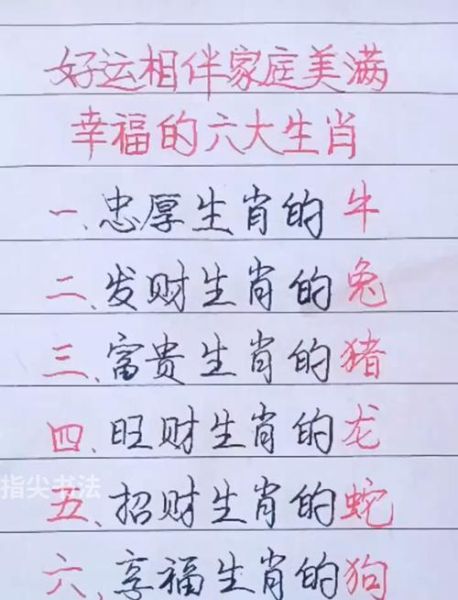 好运相伴家庭美满
幸福的六大生肖
一、忠厚生肖的牛
二、发财生肖的兔
三、富贵生肖的猪
四、旺财生肖的龙
指尖书法
五、招财生肖的蛇
六、享福生肖的狗